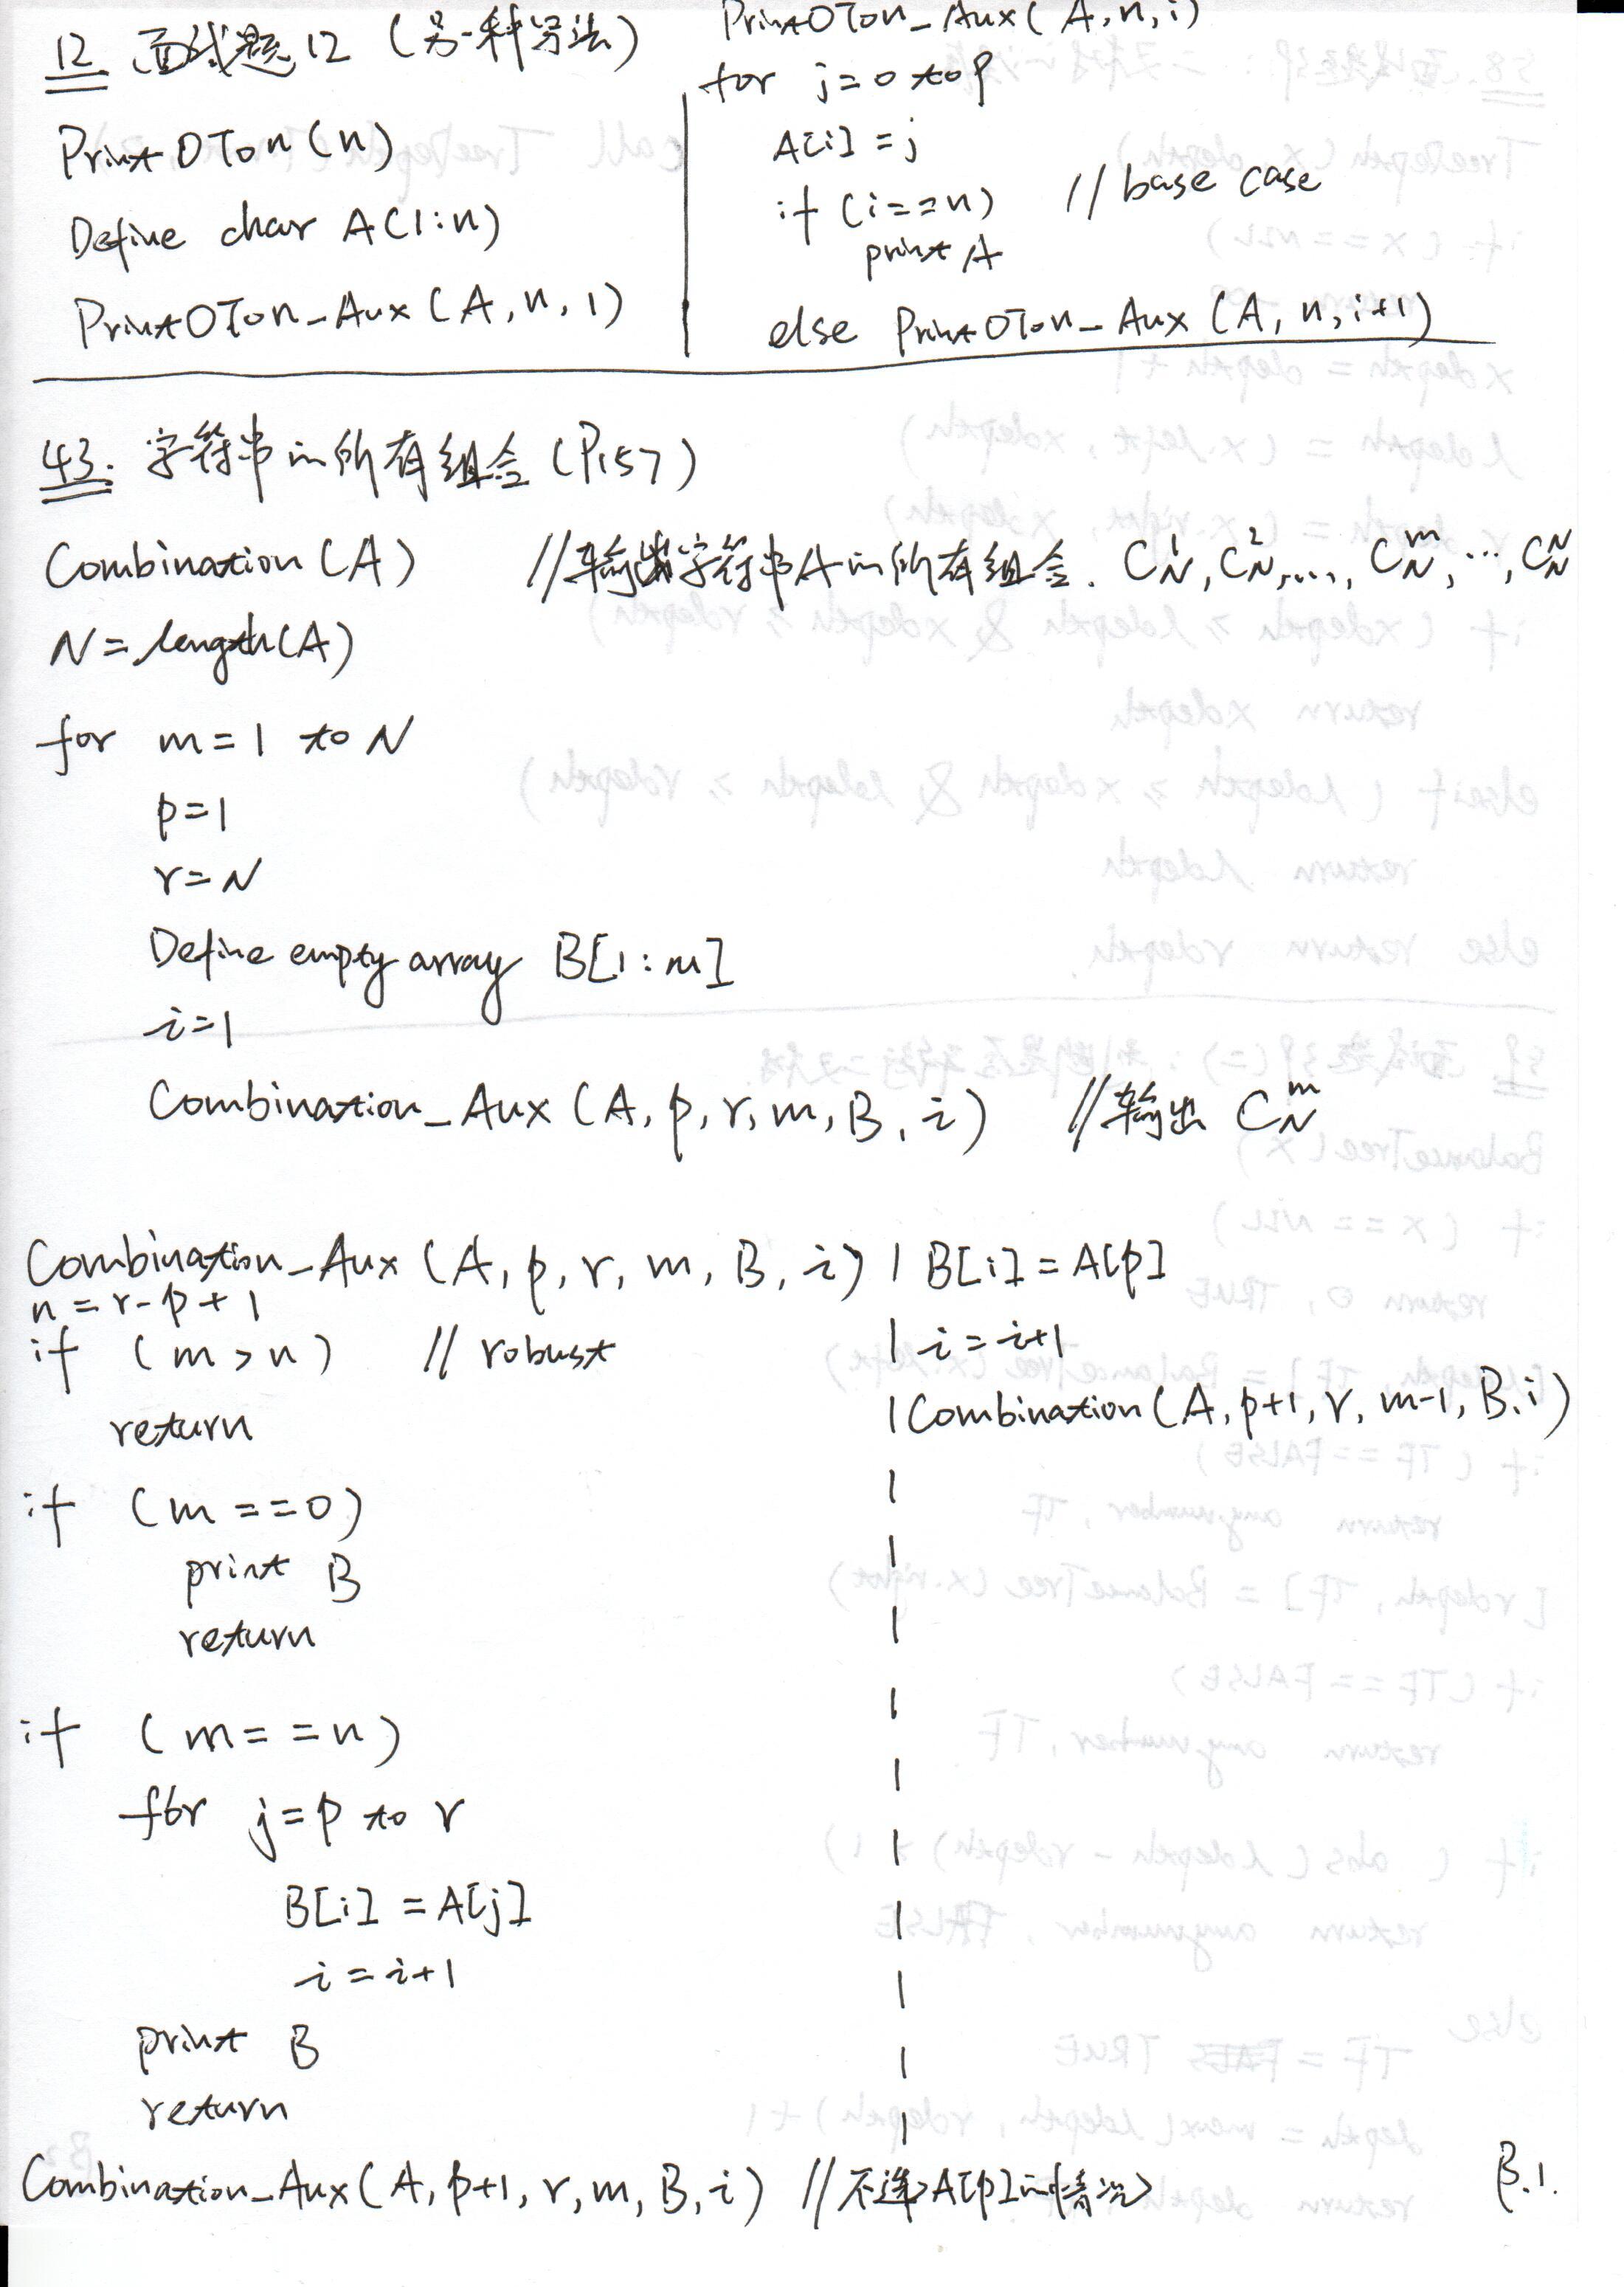 12 面试题12 (另一种写法)
Print0Ton(n)
Define char A(1:n)
Print0Ton_Aux(A, n, 1)
Print0Ton_Aux(A, n, i)
for j=0 to 9
A[i]=j
if (i==n) //base case
print A
else Print0Ton_Aux(A, n, i+1)
43. 字符串的所有组合(P157)
Combination(A) //输出字符串A的所有组合. C_N^1, C_N^2, ..., C_N^m, ..., C_N^N
N=length(A)
for m=1 to N
p=1
r=N
Define empty array B[1:m]
i=1
Combination_Aux(A, p, r, m, B, i) //输出 C_N^m
Combination_Aux(A, p, r, m, B, i)
n=r-p+1
if (m>n) // robust
return
if (m==0)
print B
return
if (m==n)
for j=p to r
B[i]=A[j]
i=i+1
print B
return
Combination_Aux(A, p+1, r, m, B, i) //不选A[p]的情况
B[i]=A[p]
i=i+1
Combination(A, p+1, r, m-1, B, i)
B.1.